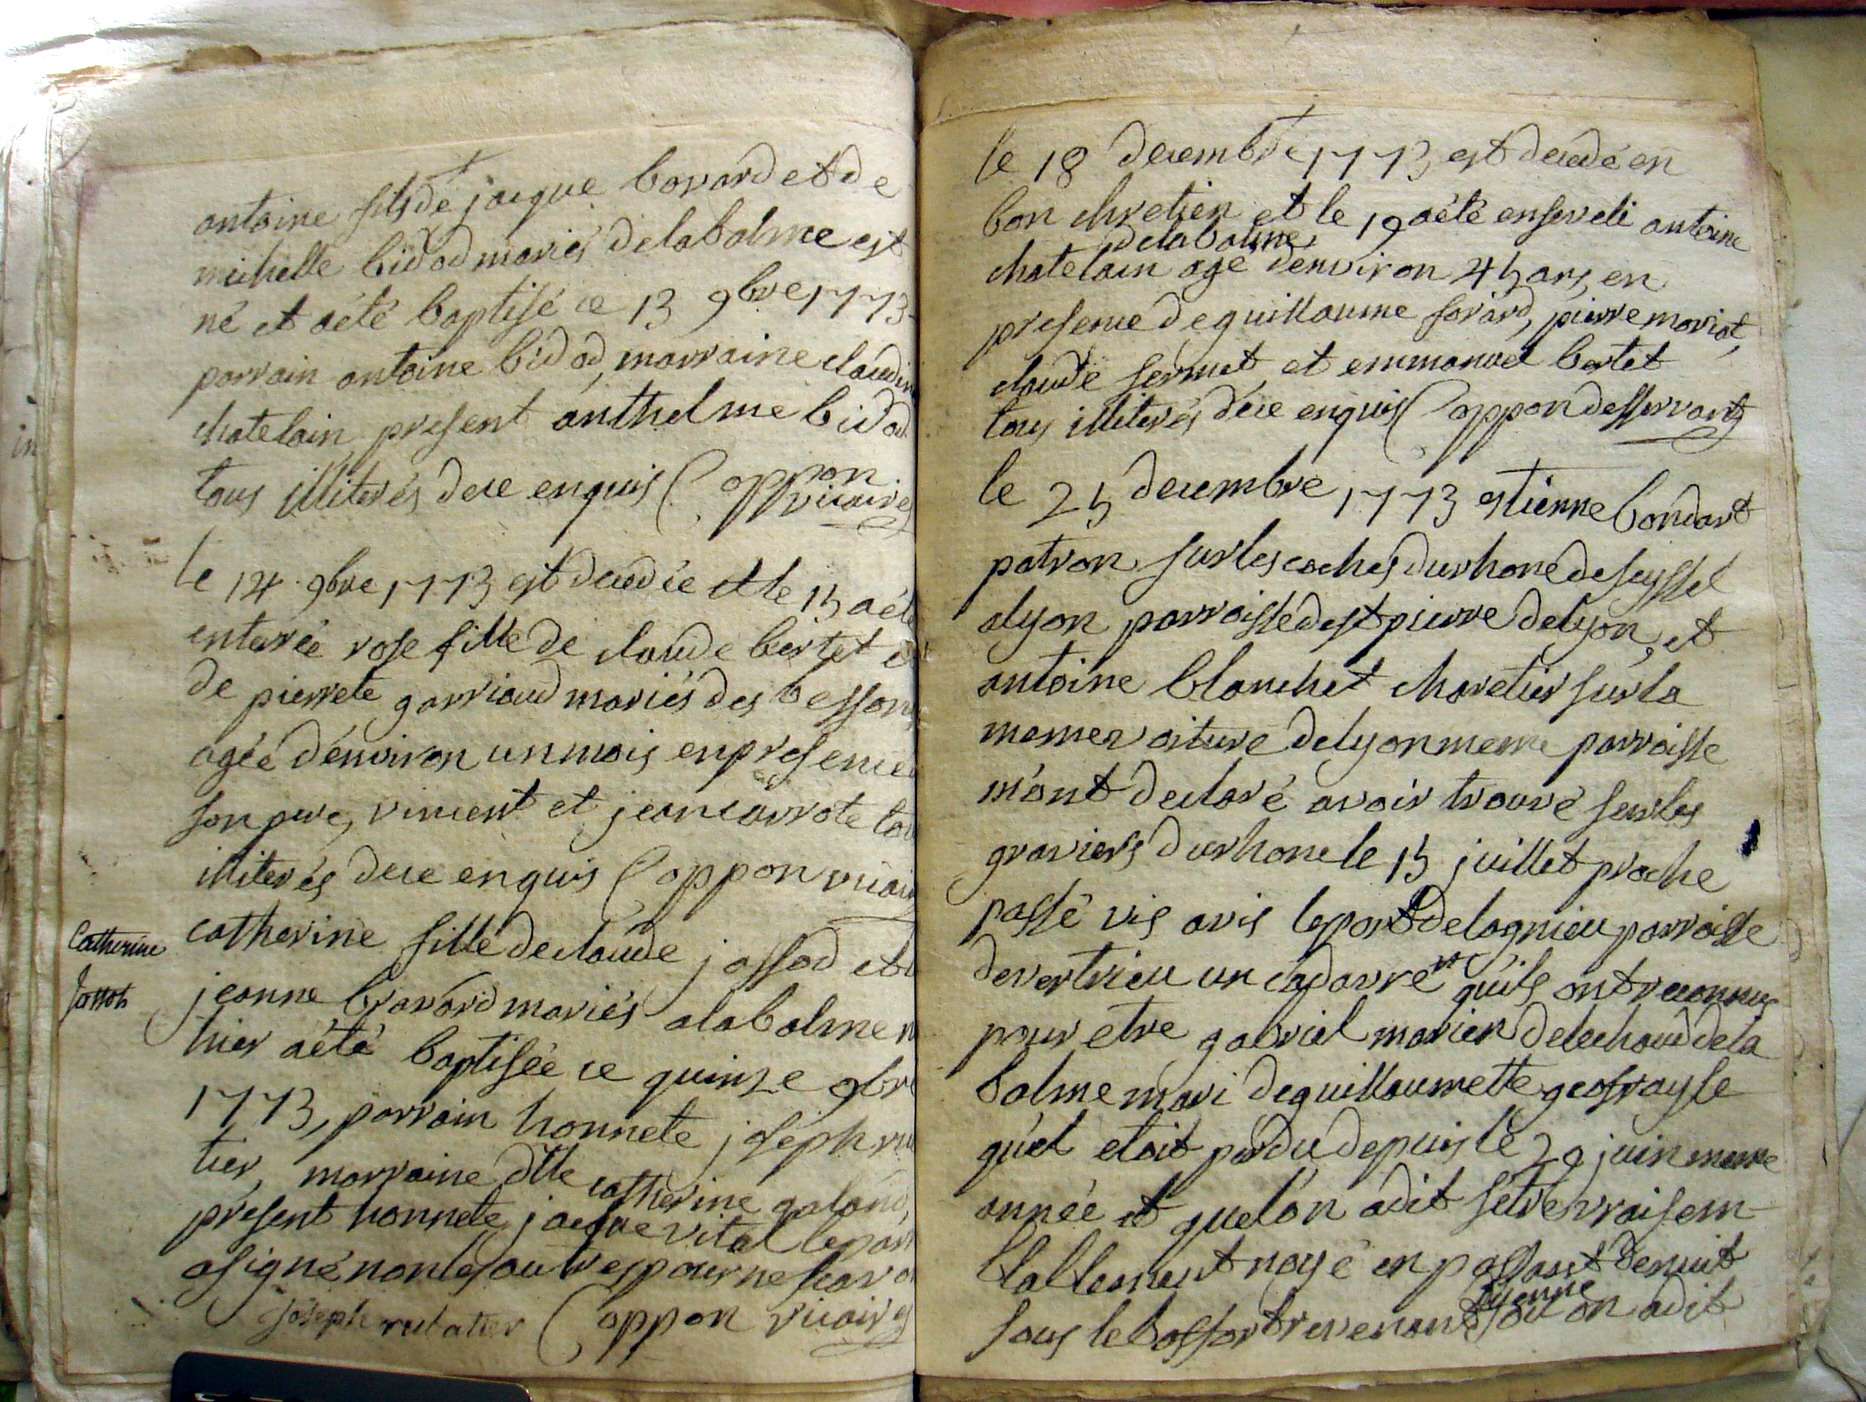 antoine fils de jacque bovard et de
michelle bidod mariés de la balme est
né et a été baptisé ce 13 9bre 1773
parrain antoine bidod, marraine claudin
chatelain present anthelme bidod
tous illiterés de ce enquis Cappon
vicaire
le 14 9bre 1773 est decedée et le 15 a été
enterrée rose fille de claude bertet et
de pierrete garriaud mariés des bessons
agée d'environ un mois en presence
son pere, vincent et jean carrote tou
illiterés de ce enquis Cappon vicair
Catherine
Jossot
catherine fille de claude jossod et
jeanne bravard mariés a la balme n
hier a été baptisée ce quinze 9br
1773, parrain honnete joseph ru
tier, marraine dlle catherine galand,
present honnete jacque vital le par
a signé non les autres pour ne scavo
joseph rulatier Cappon vicaire
le 18 decembre 1773 est decedé en
bon chretien et le 19 a été enseveli antoine
de la balme
chatelain agé d'environ 45 ans, en
presence de guillaume forard, pierre moriat,
claude sermet, et emmanuel bertet
tous illiterés de ce enquis Cappon desservant
le 25 decembre 1773 etienne bondart
patron sur les coches du rhone de seyssel
a lyon parroisse de st pierre de lyon, et
antoine blanchet charetier sur la
meme voiture de lyon meme parroisse
m'ont declaré avoir trouvé sur les
graviers du rhone le 15 juillet proche
passé vis a vis le port de lagnieu parroisse
de vertrieu un cadavre qu'ils ont reconnus
pour etre gabriel marier de la balme
balme mari de guillaumette geofray le
quel etoit perdu depuis le 29 juin meme
année et que l'on a dit s'etre vraisem-
blablement noyé en passant de nuit
sous le revenant d'ou on a dit